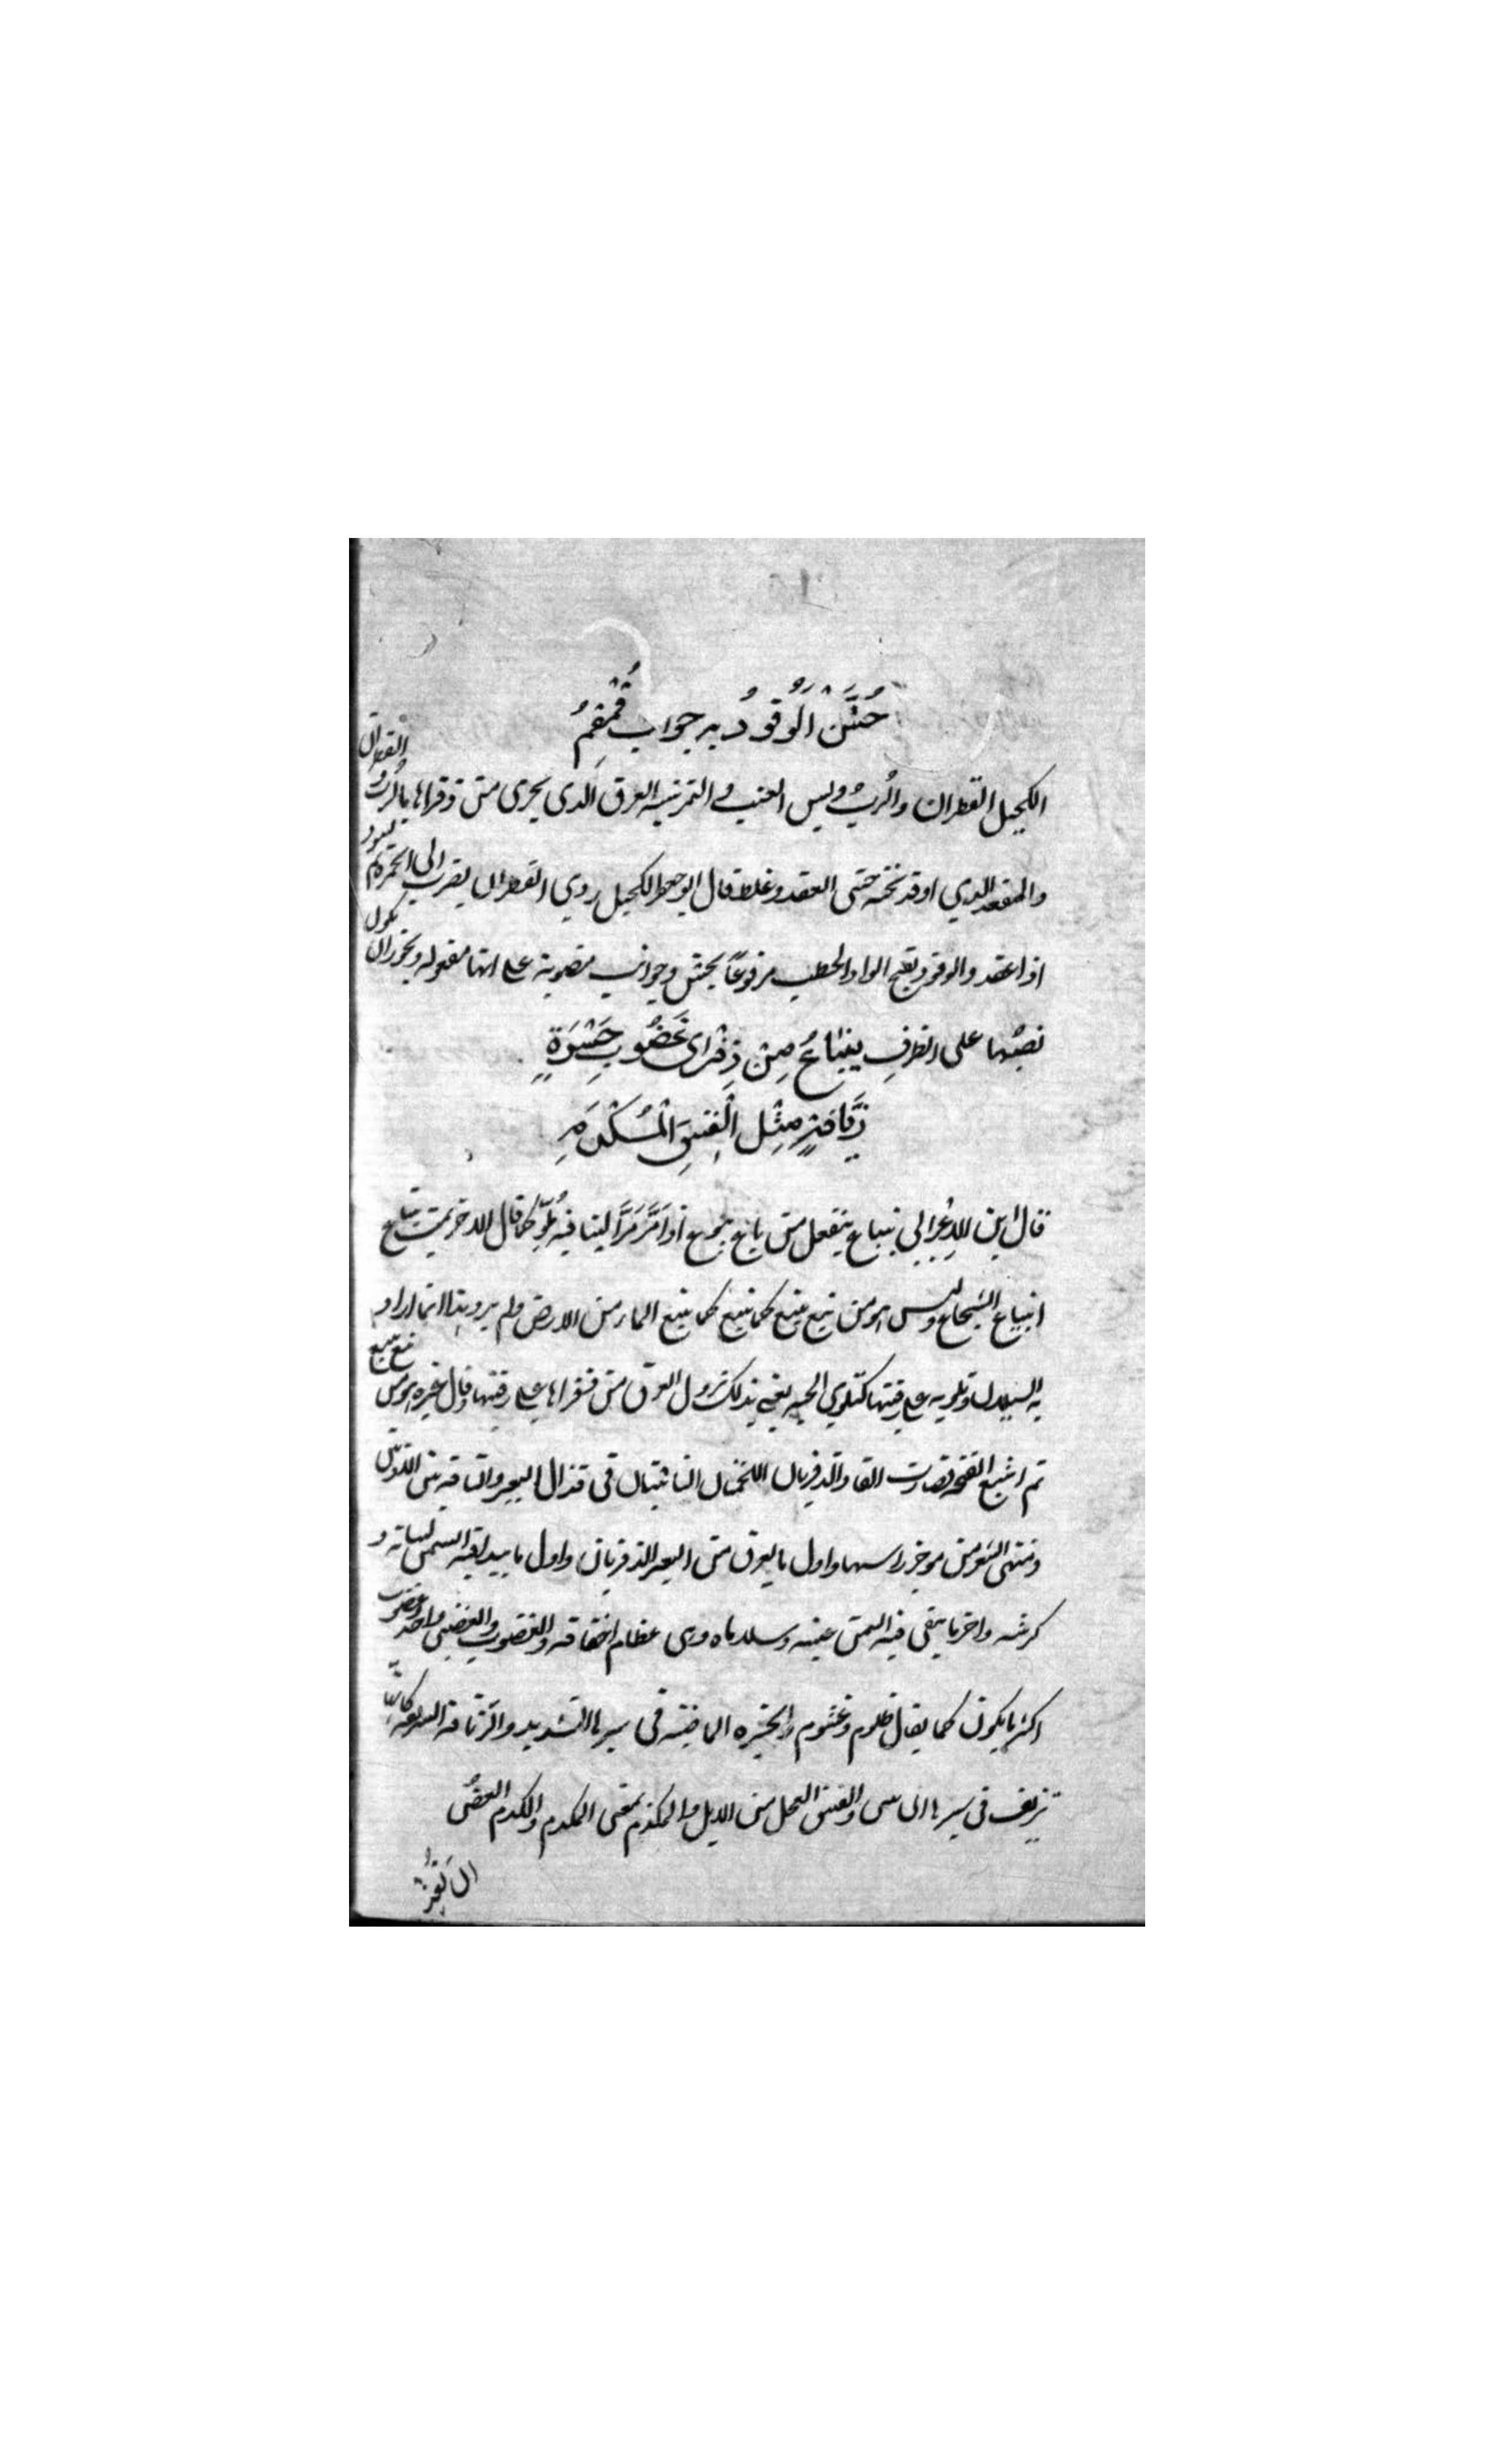 حُشَّ الْوُقودُ به جوانب قُمْقُمِ
الكحيل القطران والرُّبُّ دبس العنب والتمر شبه العرق الذي يجري من ذفراها بالرُّبِّ والقطران
والمعقد الذي اوقد تحته حتى انعقد وغلظ قال ابو جعفر الكحيل ردي القطران يضرب الى الحمرة ثم يسود
اذا عقد والوقود بفتح الواو الحطب مرفوعًا بحش وجوانب منصوبة على انها مفعوله ويجوز ان يكون
نصبُها على الظرفِ يَنْبَاعُ مِنْ ذِفْرَاى غَضُوبٍ جَسْرَةٍ
زَيَّافَةٍ مِثْلِ الْفَنِيقِ الْمُكْدَمِ
قال ابن الاعرابي ينباع ينفعل من باع يبوع اذا مَرَّ مَرًّا لينا فيه تلوٍّ كما قال الاخر ثمت ينباع
انبياع الشجاع وليس هو من نبع ينبع كما ينبع الماء من الارض ولم يرد هذا انما اراد
به السيلان وتلويه على رقبتها كتلوي الحيه يعني بذلك نزول العرق من ذفراها على رقبتها وقال غيره هو من نبع ينبع
ثم اشبع الفتحه فصارت الفا والذفريان اللذان الناتئان في قذال البعير والناقة بين الاذنين
ومنتهى الشعر من موخر راسها واول ما يعرق من البعير الذفريان واول ما يبدا فيه السمن لسانه و
كرشه واخر ما يبقى فيه السمن عينه وسلاماه وهى عظام اخفافه والغضوب والغضبى واحد وغضوب
اكثر ما يكون كما يقال ظلوم وغشوم والجسره الماضية في سيرها الشديد والزيافه السريعه كانها
تزيف في سيرها اى والفنيق الفحل من الابل والمكدم بمعنى المكدم والكدم العضُّ